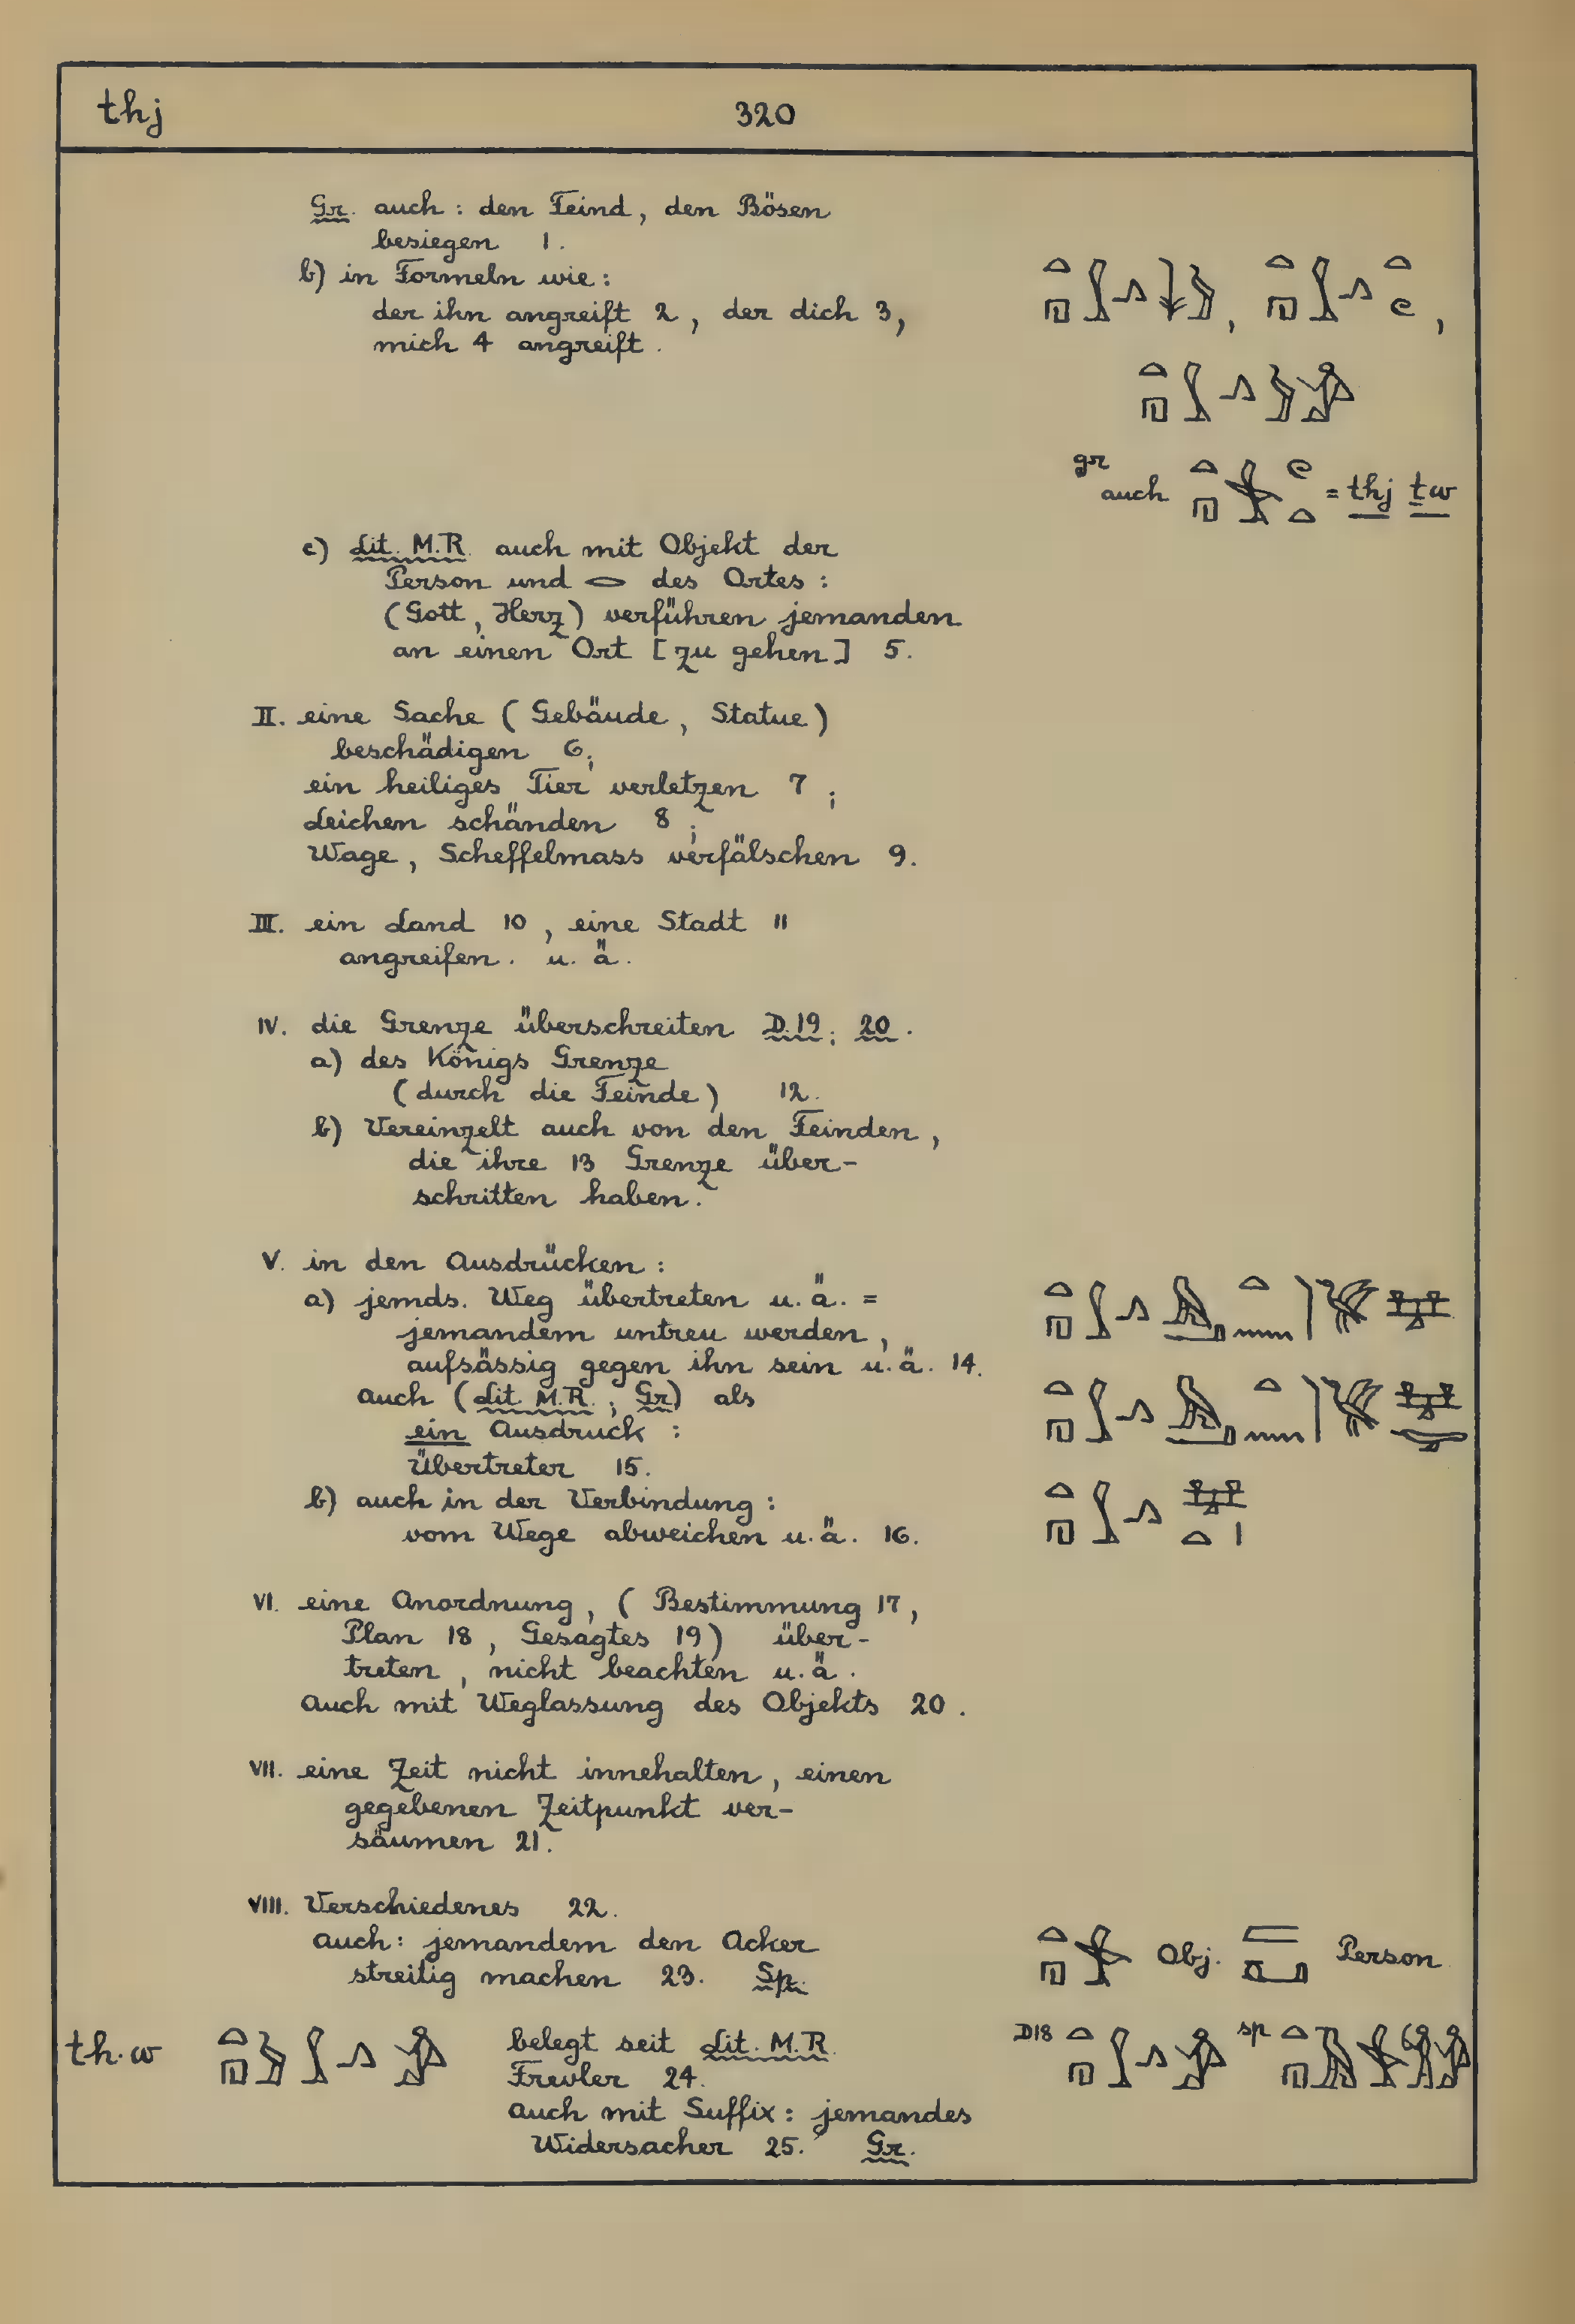 thj 320
Gr. auch : den Feind, den Bösen
besiegen 1.
b) in Formeln wie :
der ihn angreift 2, der dich 3,
mich 4 angreift.
gr
auch = thj tw
c) Lit. M.R. auch mit Objekt der
Person und 𓂋 des Ortes :
(Gott, Herz) verführen jemanden
an einen Ort [zu gehen] 5.
II. eine Sache (Gebäude, Statue)
beschädigen 6;
ein heiliges Tier verletzen 7;
Leichen schänden 8;
Wage, Scheffelmass verfälschen 9.
III. ein Land 10, eine Stadt 11
angreifen. u. ä.
IV. die Grenze überschreiten D.19; 20.
a) des Königs Grenze
(durch die Feinde) 12.
b) Vereinzelt auch von den Feinden,
die ihre 13 Grenze über-
schritten haben.
V. in den Ausdrücken :
a) jemds. Weg übertreten u. ä. =
jemandem untreu werden,
aufsässig gegen ihn sein u. ä. 14.
auch (Lit. M.R.; Gr) als
ein Ausdruck :
Übertreter 15.
b) auch in der Verbindung :
vom Wege abweichen u. ä. 16.
VI. eine Anordnung, (Bestimmung 17,
Plan 18, Gesagtes 19) über-
treten, nicht beachten u. ä.
Auch mit Weglassung des Objekts 20.
VII. eine Zeit nicht innehalten, einen
gegebenen Zeitpunkt ver-
säumen 21.
VIII. Verschiedenes 22.
auch : jemandem den Acker Obj. Person
streitig machen 23. Sp.
th·w belegt seit Lit. M.R. D18 sp
Frevler 24.
auch mit Suffix : jemandes
Widersacher 25. Gr.